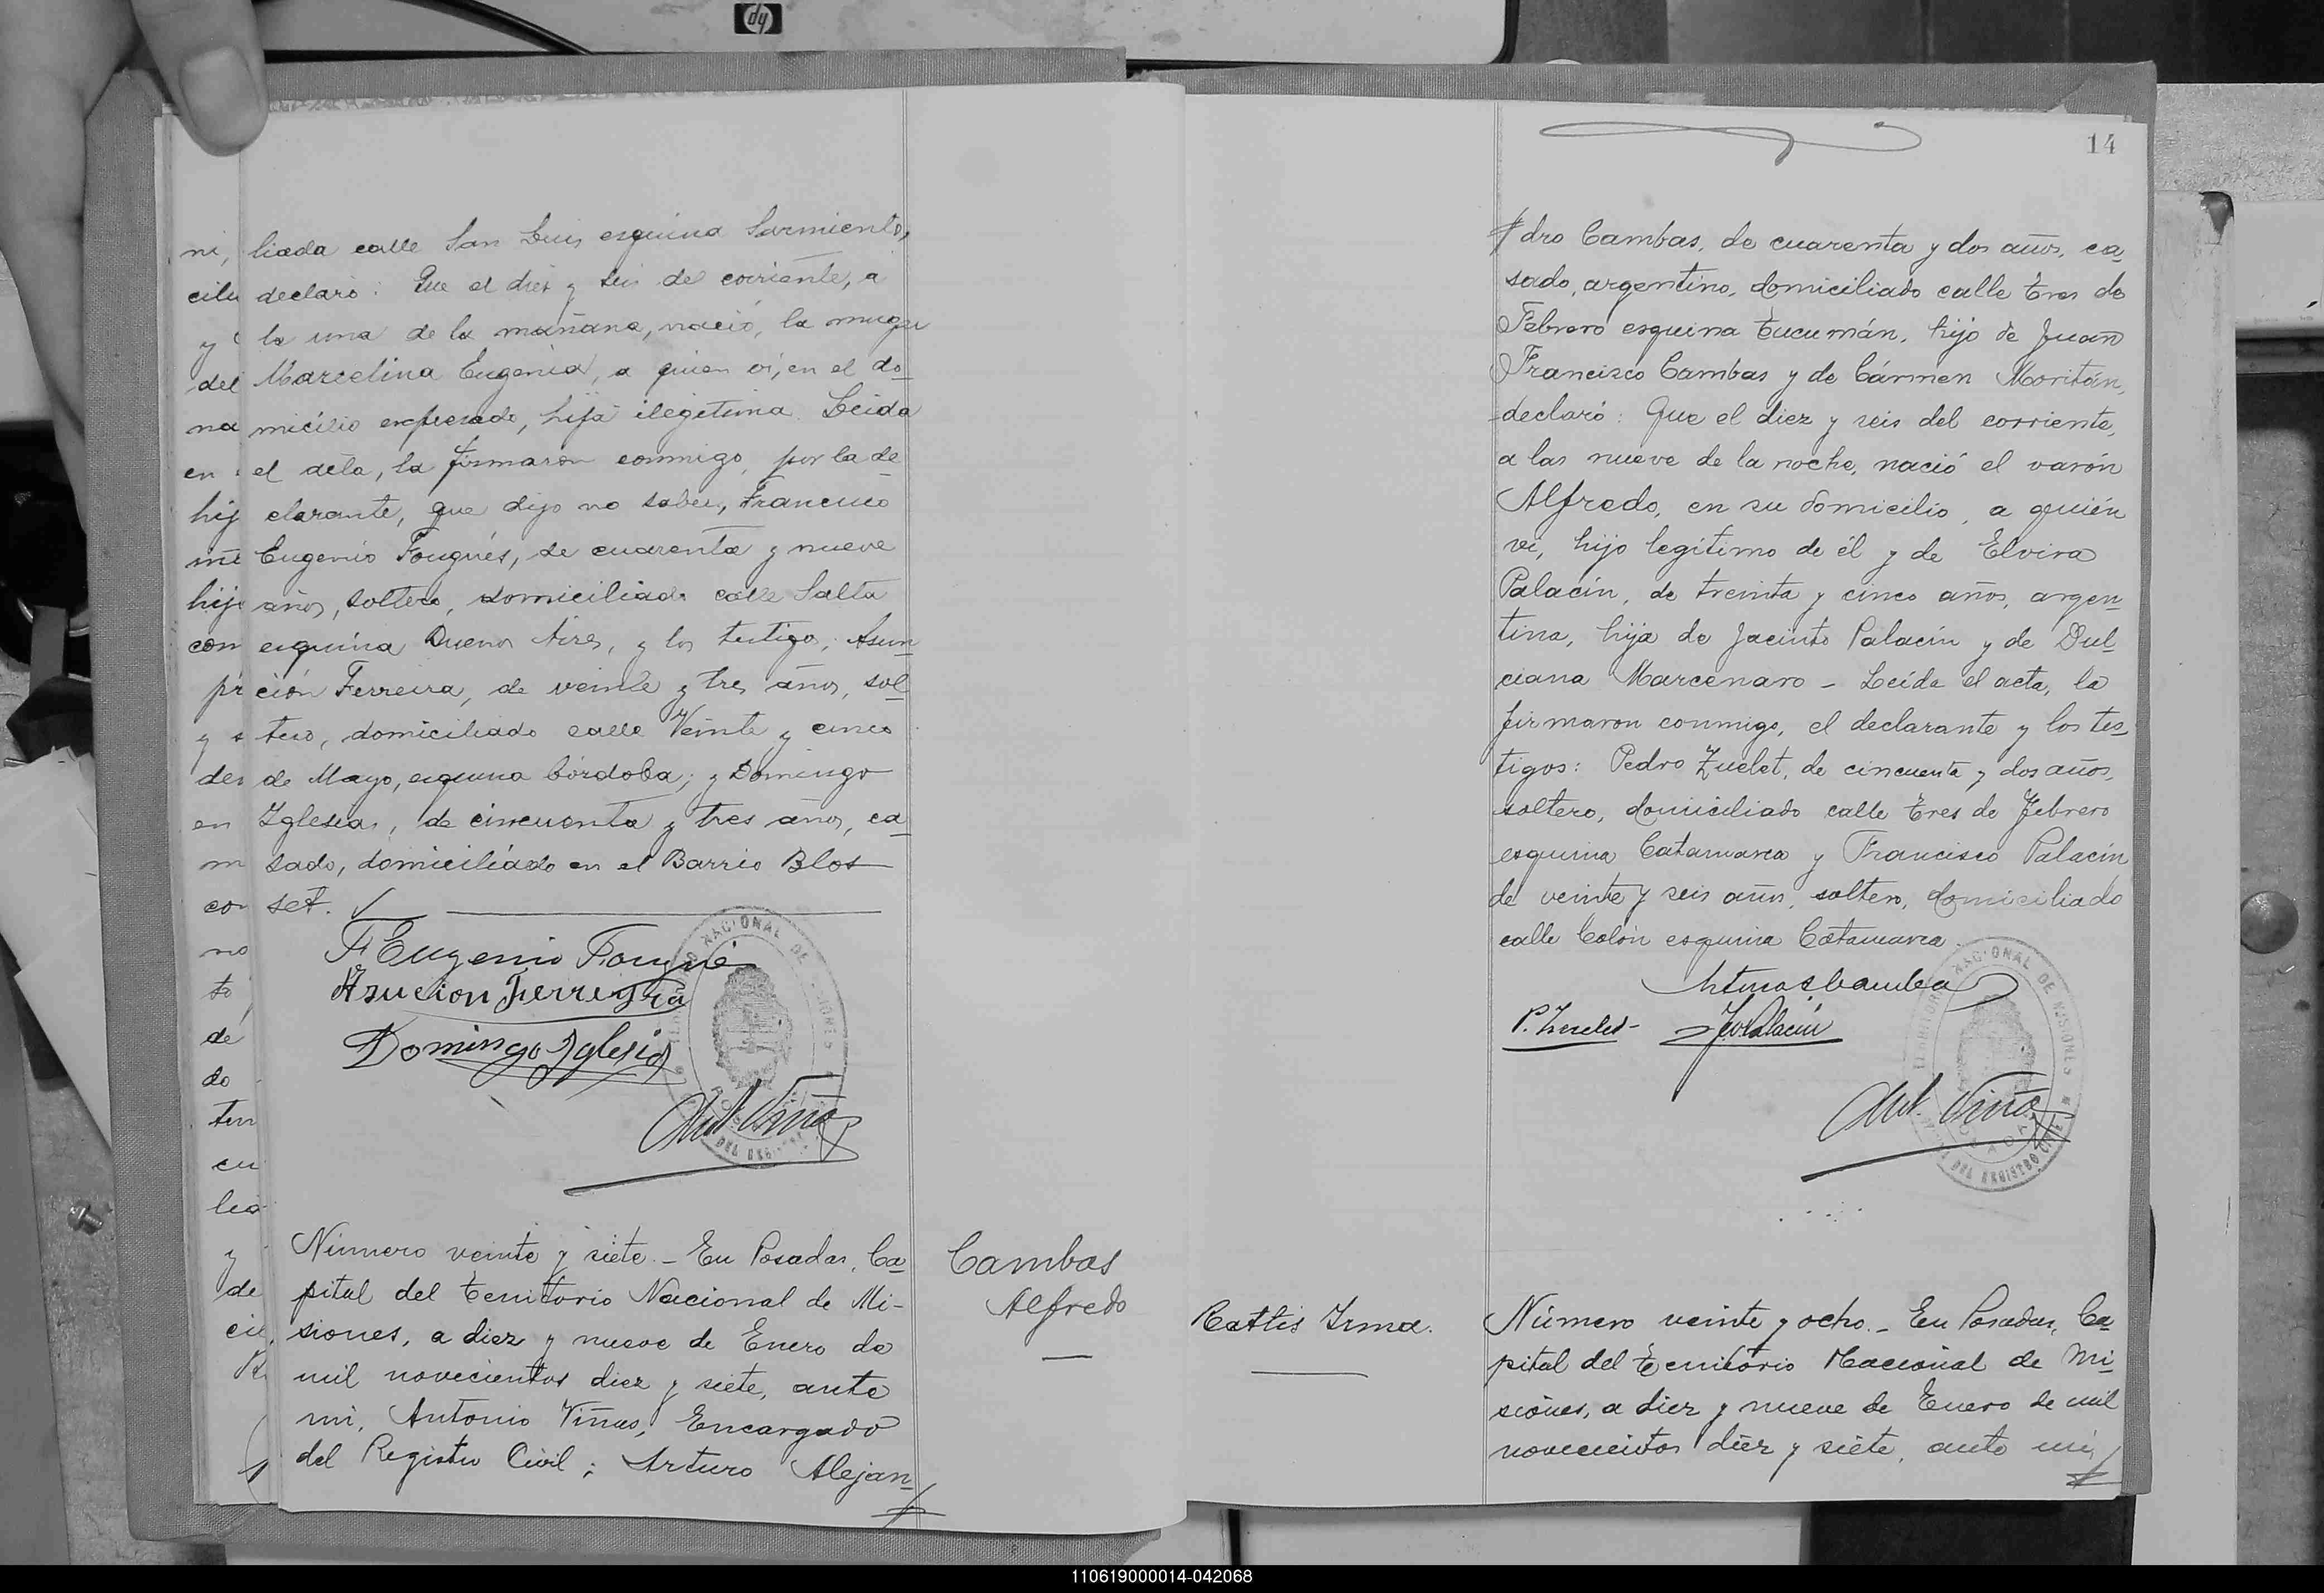 hp
liada calle San Luis esquina Sarmiento,
declaró: Que el diez y seis de corriente, a
la una de la mañana, nació, la mujer
Marcelina Eugenia, a quien vi, en el do-
micilio expresado, hija ilegitima. Leida
el acta, la firmaron conmigo, por la de-
clarante, que dijo no saber, Francisco
Eugenio Fouqués, de cuarenta y nueve
años, soltero, domiciliado calle Salta
esquina Buenos Aires, y los testigos, Asun-
ción Ferreira, de veinte y tres años, sol-
tero, domiciliado calle Veinte y cinco
de Mayo, esquina Córdoba; y Domingo
Iglesias, de cincuenta y tres años, ca-
sado, domiciliado en el Barrio Blos
set.
F Eugenio Fouqué
Asucion Ferreyra
Domingo Iglesias
Ant. Viñas
Número veinte y siete.- En Posadas, Ca-
pital del Territorio Nacional de Mi-
siones, a diez y nueve de Enero de
mil novecientos diez y siete, ante
mi, Antonio Viñas, Encargado
del Registro Civil; Arturo Alejan-
Cambas
Alfredo
14
dro Cambas, de cuarenta y dos años, ca-
sado, argentino, domiciliado calle Tres de
Febrero esquina Tucumán, hijo de Juan
Francisco Cambas y de Cármen Moritán,
declaró: Que el diez y seis del corriente,
a las nueve de la noche, nació el varón
Alfredo, en su domicilio, a quién
vi, hijo legítimo de él y de Elvira
Palacín, de treinta y cinco años, argen-
tina, hija de Jacinto Palacín y de Dul-
ciana Marcenaro - Leída el acta, la
firmaron conmigo, el declarante y los tes-
tigos: Pedro Zuelet, de cincuenta y dos años,
soltero, domiciliado calle Tres de Febrero
esquina Catamarca y Francisco Palacín
de veinte y seis años, soltero, domiciliado
calle Colón esquina Catamarca.
Arturo A Cambas
P. Zuelet- Fco Palacín
NACIONAL DE MISIONES
DEL REGISTRO CIVIL
Ant. Viñas
Rattis Irma.
Número veinte y ocho.- En Posadas, Ca-
pital del Territorio Nacional de Mi-
siones, a diez y nueve de Enero de mil
novecientos diez y siete, ante mi,
110619000014-042068